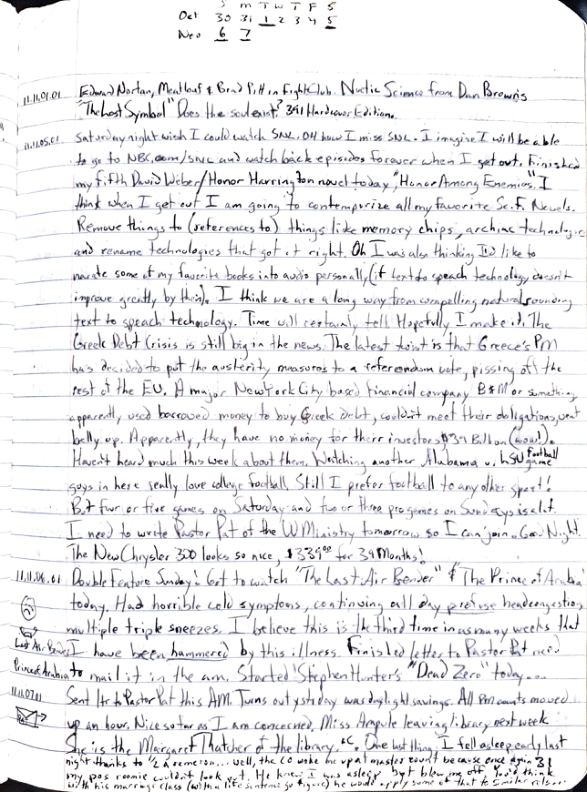 S M T W T F S
Oct 30 31 1 2 3 4 5
Nov 6 7
11.11.01.01 Edward Norton, Meatloaf & Brad Pitt in Fight Club. Noetic Science from Dan Brown's
"The Lost Symbol" Does the soul exist? 391 Hardcover Edition.
11.11.05.01 Saturday night wish I could watch SNL. OH how I miss SNL. I imagine I will be able
to go to NBC.com/snl and watch back episides forever when I get out. Finished
my fifth David Weber/Honor Harrington novel today "Honor Among Enemies". I
think when I get out I am going to contemporize all my favorite Sci.Fi. Novels.
Remove things to (references to) things like memory chips, archaic technologies
and rename technologies that got it right. Oh I was also thinking I'd like to
narate some of my favorite books into audio personally, (if text to speach technology doesn't
improve greatly by then). I think we are a long way from compelling natural sounding
text to speach technology. Time will certainly tell Hopefully I make it. The
Greek Debt Crisis is still big in the news. The latest twist is that Greece's PM
has decided to put the austerity measures to a referendom vote, pissing off the
rest of the EU. A major New York City based financial company B&M or something,
apparently used borrowed money to buy Greek debt, couldn't meet their obligations, went
belly up. Apparently, they have no money for their investors $39 Billion (wow!).
Haven't heard much this week about them. Watching another Alabama v. LSU football game
guys in here really love college football. Still I prefer football to any other sport!
But four or five games on Saturday and two or three pro games on Sundays is a lot.
I need to write Pastor Pat of the W Ministry tomorrow so I can join. Good Night.
The New Chrysler 300 looks so nice, $339.00 for 39 Months!
11.11.06.01 Double Feature Sunday! Got to watch "The Last Air Bender" & "The Prince of Arabia"
today. Had horrible cold symptoms, continuing all day profuse head congestion,
multiple triple sneezes. I believe this is the third time in as many weeks that
Last Air Bender I have been hammered by this illness. Finished letter to Pastor Pat need
Prince of Arabia to mail it in the a.m. Started Stephen Hunter's "Dead Zero" today...
11.11.07.01 Sent ltr to Pastor Pat this AM. Turns out ystrday was daylight savings. All PM counts moved
up an hour. Nice so far as I am concerned. Miss leaving library next week
She is the Margaret Thatcher of the library. One last thing: I fell asleep early last
night thanks to 1/2 a well, the CO woke me up at master count because once again
my pos roomie couldn't look out. He knew I was asleep but blew me off. You'd think
with his marriage class (with a life sentence go figure) he would apply some of that to similar